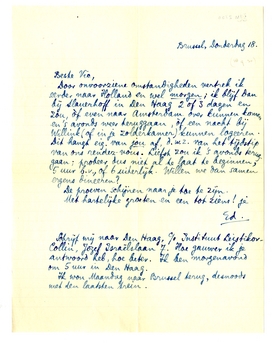 Brussel, Donderdag 18.
Beste Vic,
Door onvoorziene omstandigheden vertrek ik
eerder naar Holland en wel morgen; ik blijf dan
bij Slauerhoff in Den Haag 2 of 3 dagen en
zou, óf even naar Amsterdam ons kunnen kom
en 's avonds weer teruggaan, óf een nacht bij
Willink (of in je zolderkamer) kunnen logeeren.
Dit hangt eig. van jou af, d.w.z. van het tijdstip
van ons rendez-vous. Liefst zou ik 's avonds terug
gaan: probeer dus niet al te laat te beginnen,
5 uur b.v., of 6 uiterlijk. Willen we dan samen
ergens dineeren?
De proeven schijnen naar je toe te zijn.
Met hartelijke groeten en een tot ziens! je
Ed.
Schrijf mij naar Den Haag, p/a Instituut
Collin, Jozef Israëlslaan 7. Hoe gauwer ik je
antwoord heb, hoe beter. Ik ben morgenavond
om 5 uur in Den Haag.
Ik wou Maandag naar Brussel terug, desnoods
met den laatsten trein.